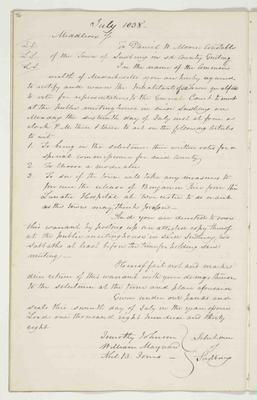 July 1838.
Middlesex ss
L.S. To Daniel W. Moore Constable
L.S. of the Town of Sudbury in sd County Greeting
L.S. In the name of the Common
wealth of Massachusetts you are hereby required
to notify and warn the Inhabitants of sd Town qualified
to vote for representatives to the General Court to meet
at the public meeting house in said Sudbury on
Monday the sixteenth day of July inst at four o
clock P.M. then & there to act on the following articles
to wit
1. To bring in to the selectmen their written vote for a
special commissioner for said County
2. To choose a moderator
3. To see if the town will take any measures to
procure the release of Benjamin Rice from the
Lunatic Hospital at Worcester to or
as the town may think proper
And you are directed to serve
this warrant by posting up an attested copy thereof
at the public meeting house in said Sudbury two
Sabbaths at least before the time for holding said
meeting —
Hereof fail not and make
due return of this warrant with your doings thereon
to the selectmen at the time and place aforesaid
Given under our hands and
seals this seventh day of July in the year of our
Lord one thousand eight hundred and thirty
eight
Timothy Johnson Selectmen
William Maynard of
Abel B. Jones — Sudbury